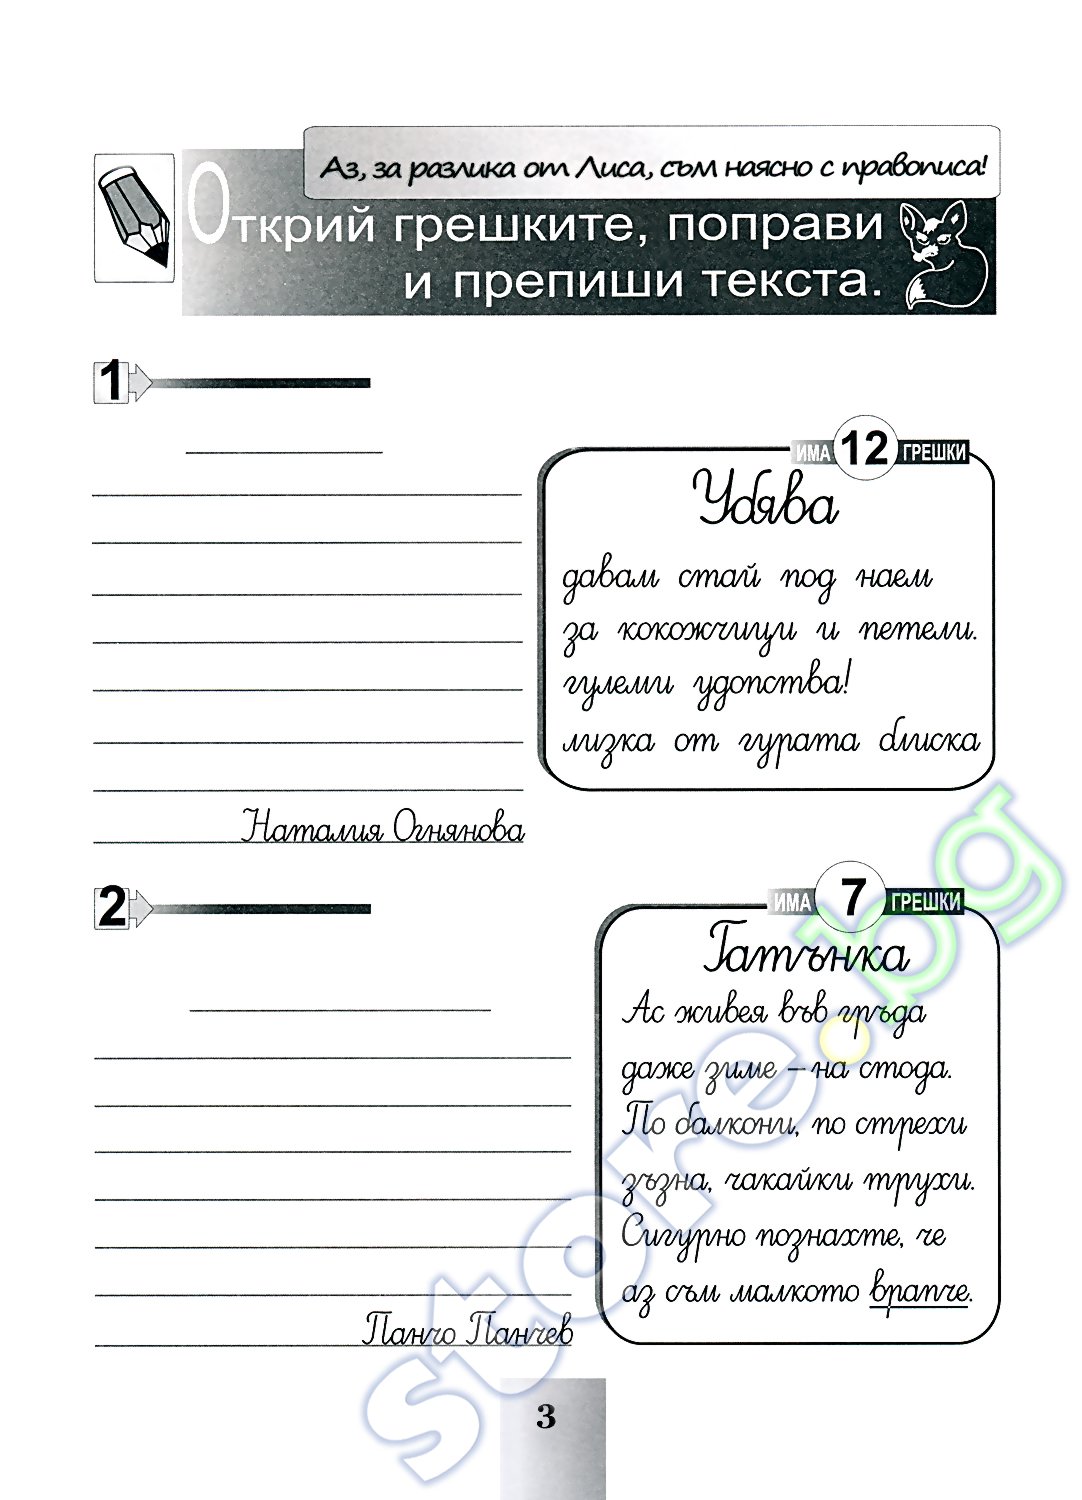 Аз, за разлика от Лиса, съм наясно с правописа!
Открий грешките, поправи
и препиши текста.
1
ИМА 12 ГРЕШКИ
Убява
давам стай под наем
за кокожчици и петели.
гулеми удопства!
лизка от гурата блиска
Наталия Огнянова
2
ИМА 7 ГРЕШКИ
Гатънка
Ас живея във гръда
даже зиме – на стода.
По балкони, по стрехи
зъзна, чакайки трухи.
Сигурно познахте, че
аз съм малкото врапче.
Панчо Панчев
3
store.bg